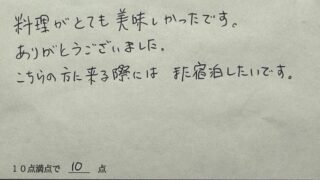 料理がとても美味しかったです。
ありがとうございました.
こちらの方に来る際には また宿泊したいです。
10点満点で 10 点